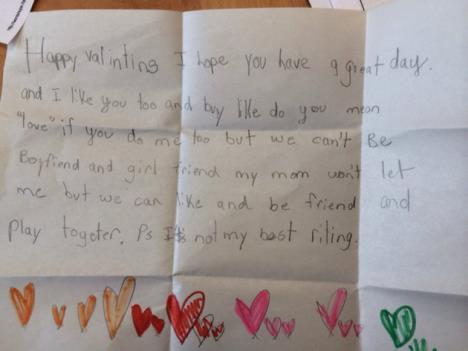 Happy valintins I hope you have a great day.
and I like you too and buy like do you mean
"love" if you do me too but we can't Be
Boyfiend and girl friend my mom won't let
me but we can like and be friend and
Play togoter. Ps It's not my best riting.